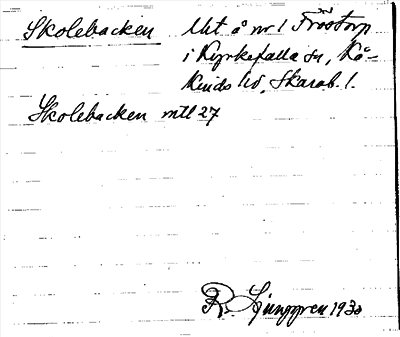 Skolebacken Ukt å nr 1 Frostorp
i Kyrkefalla sn, Kå-
kinds hd, Skarab. l.
Skolebacken mtl 27
R. Ljunggren 1930